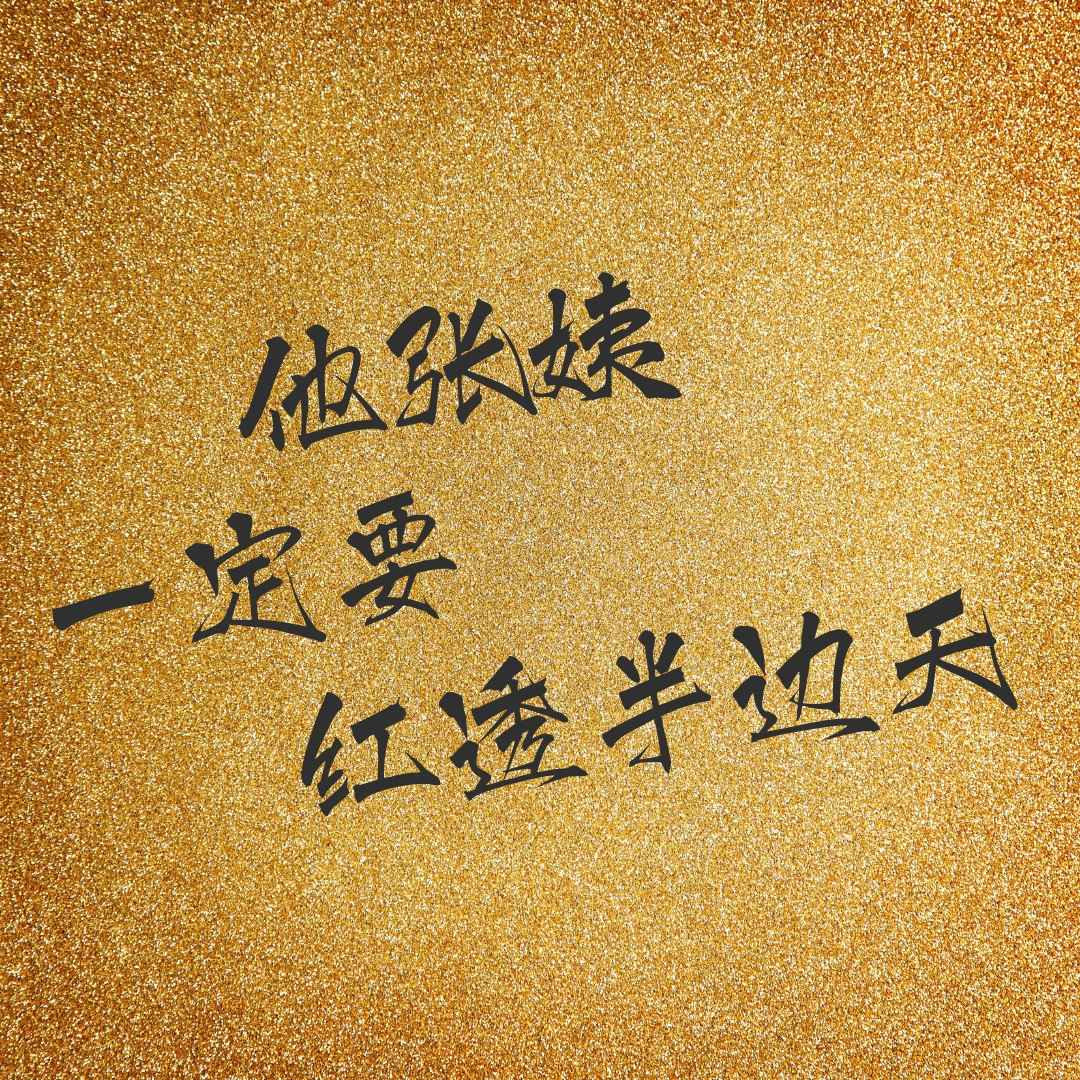 他张姨
一定要
红透半边天